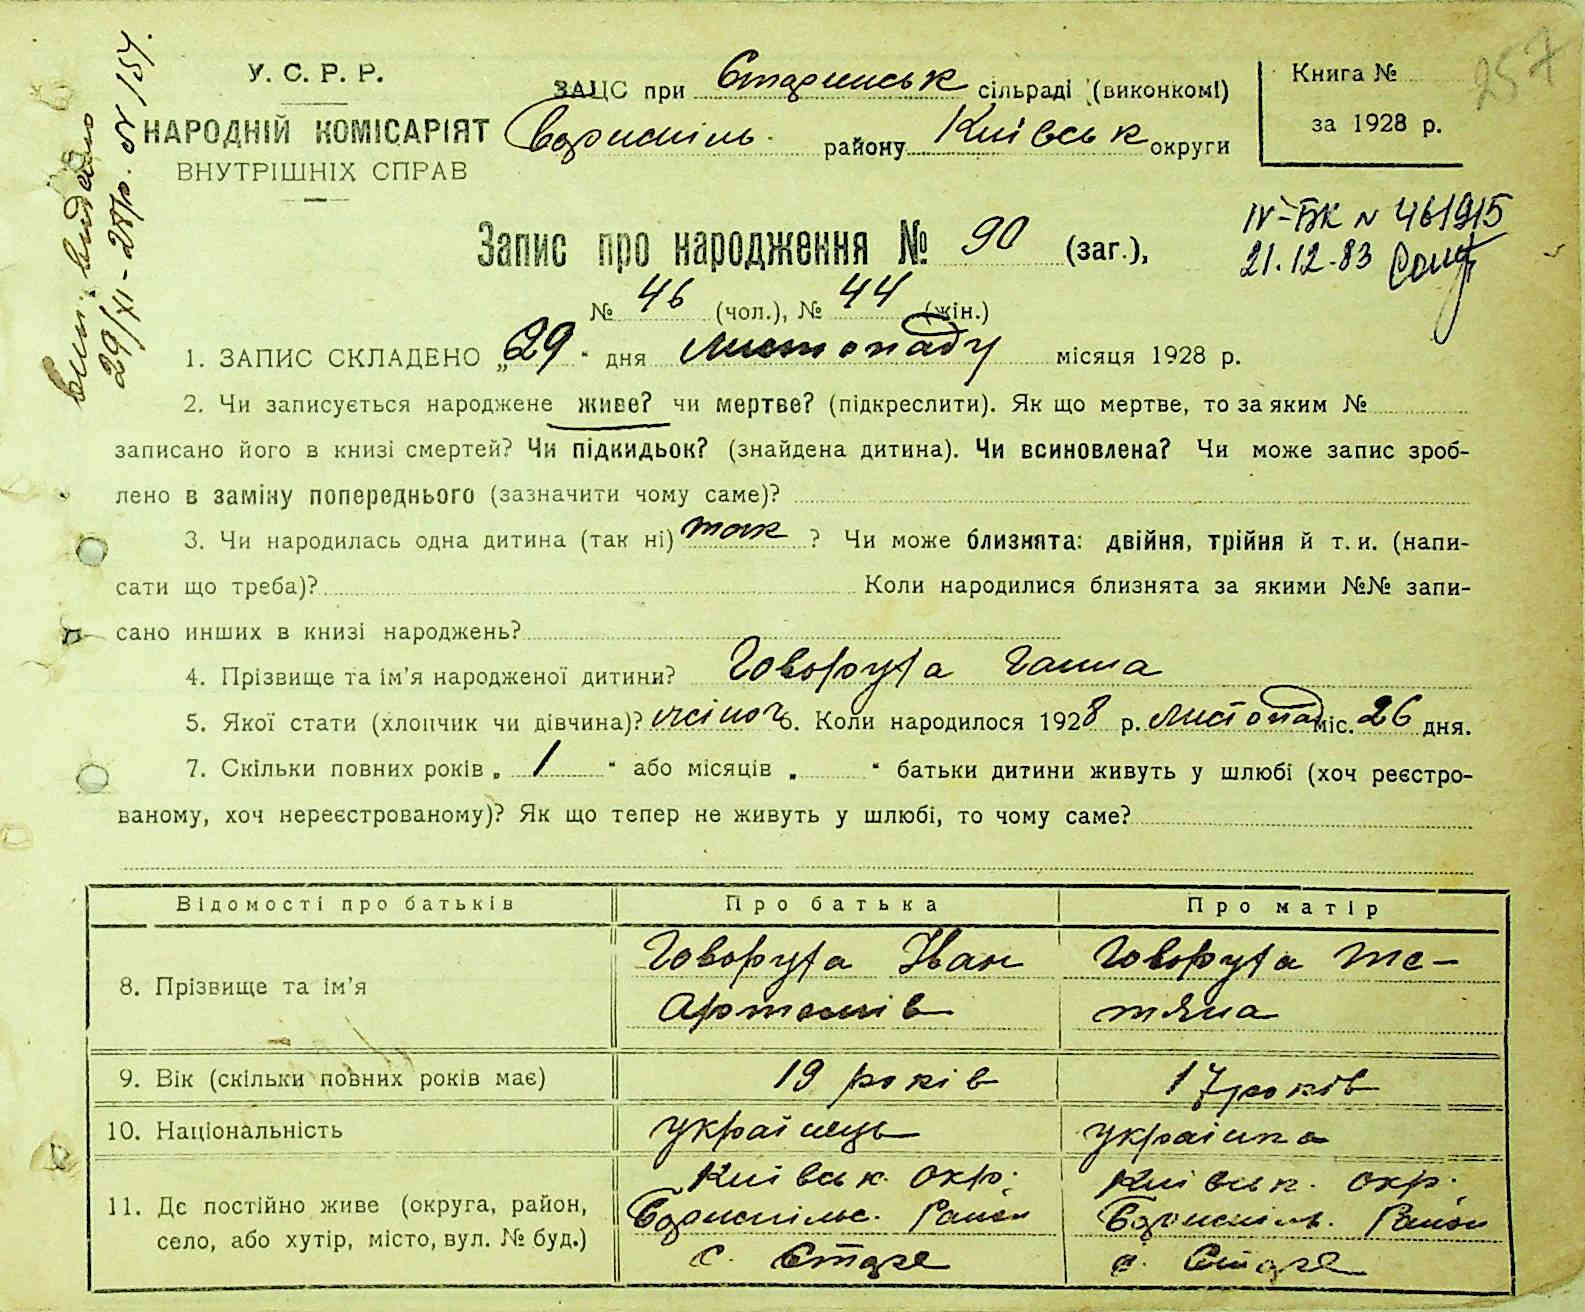 257
У. С. Р. Р.
НАРОДНІЙ КОМІСАРІЯТ
ВНУТРІШНІХ СПРАВ
ЗАЦС при Старинськ сільраді (виконкомі)
Бориспіль. району Київськ округи
Книга №
за 1928 р.
Вип. видано
29/XI - 28р. № 154.
IV-БК № 461915
21.12.83
Запис про народження № 90 (заг.),
№ 46 (чол.), № 44 (жін.)
1. ЗАПИС СКЛАДЕНО „29“ дня листопаду місяця 1928 р.
2. Чи записується народжене живе? чи мертве? (підкреслити). Як що мертве, то за яким №
записано його в книзі смертей? Чи підкидьок? (знайдена дитина). Чи всиновлена? Чи може запис зроб-
лено в заміну попереднього (зазначити чому саме)?
3. Чи народилась одна дитина (так ні) так ? Чи може близнята: двійня, трійня й т. и. (напи-
сати що треба)? Коли народилися близнята за якими №№ запи-
сано инших в книзі народжень?
4. Прізвище та ім'я народженої дитини? Говоруха Ганна
5. Якої стати (хлопчик чи дівчина)? жіноч 6. Коли народилося 1928 р. листопад міс. 26 дня.
7. Скільки повних років „ 1 “ або місяців „ “ батьки дитини живуть у шлюбі (хоч реєстро-
ваному, хоч нереєстрованому)? Як що тепер не живуть у шлюбі, то чому саме?
Відомості про батьків Про батька Про матір
8. Прізвище та ім'я
Говоруха Іван
Артемів
Говоруха Те-
тяна
9. Вік (скільки повних років має) 19 років 17 років
10. Національність українець українка
11. Де постійно живе (округа, район,
село, або хутір, місто, вул. № буд.)
Київськ. окр.
Бориспільс. Район
с. Старе
Київськ. окр.
Бориспіль. Район
с. Старе